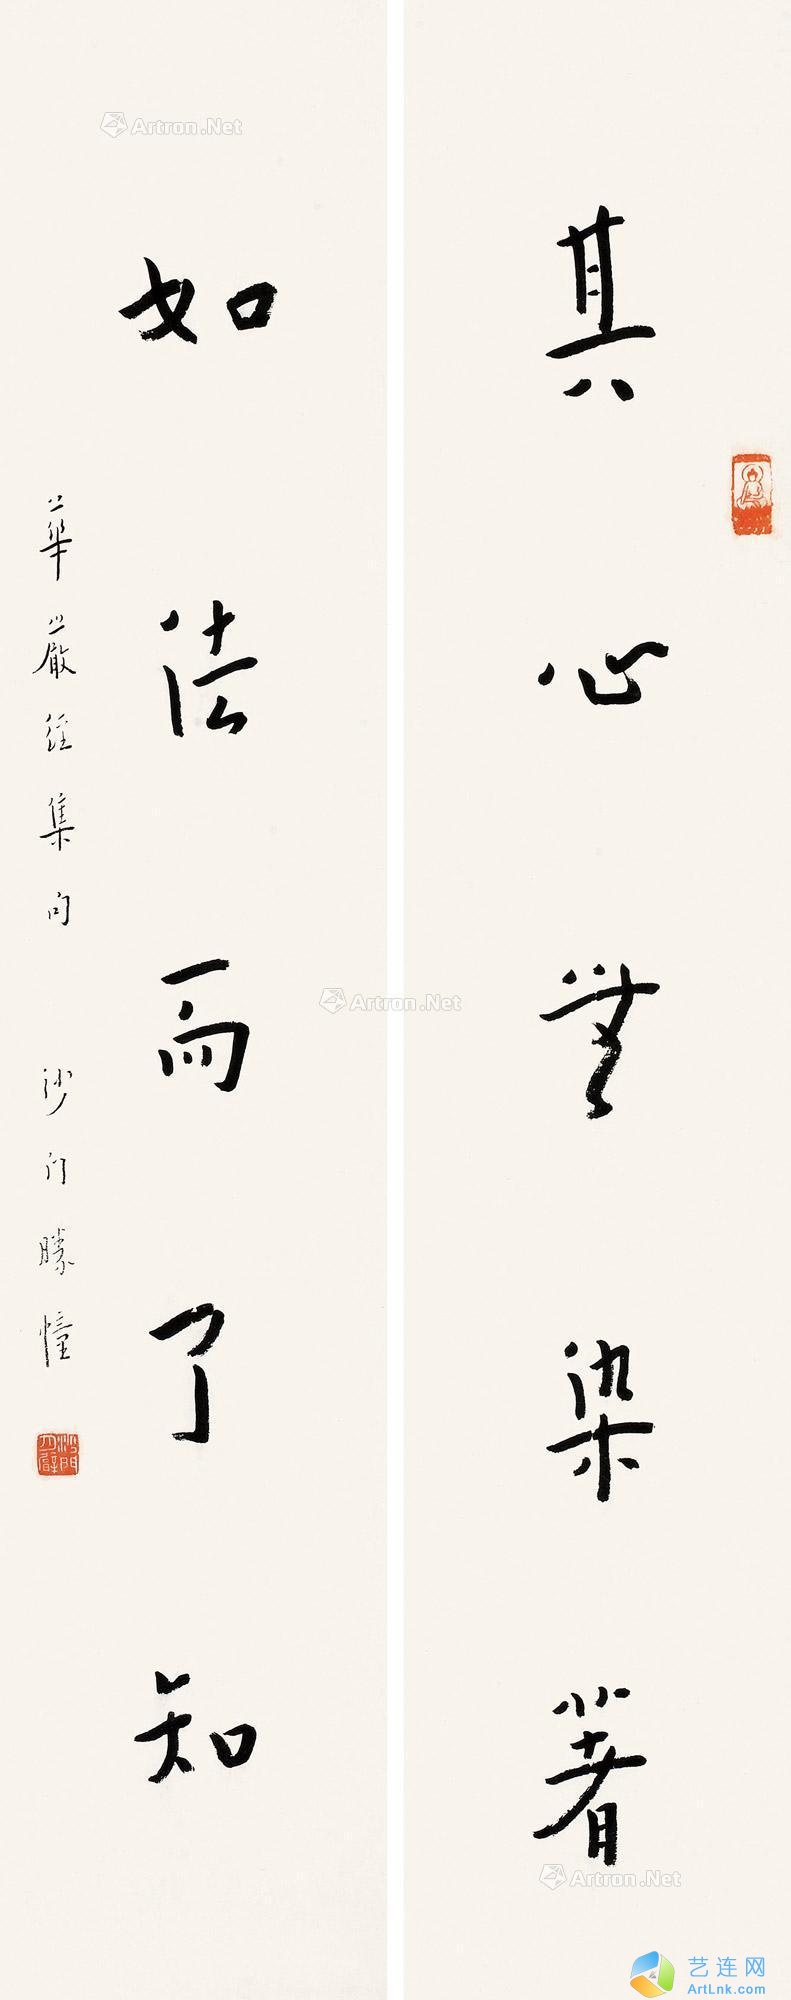 其心無染著
如法而了知
華嚴經集句 沙門勝幢
沙門一臂
Artron.Net
Artron.Net
Artron.Net
艺连网
ArtLnk.com